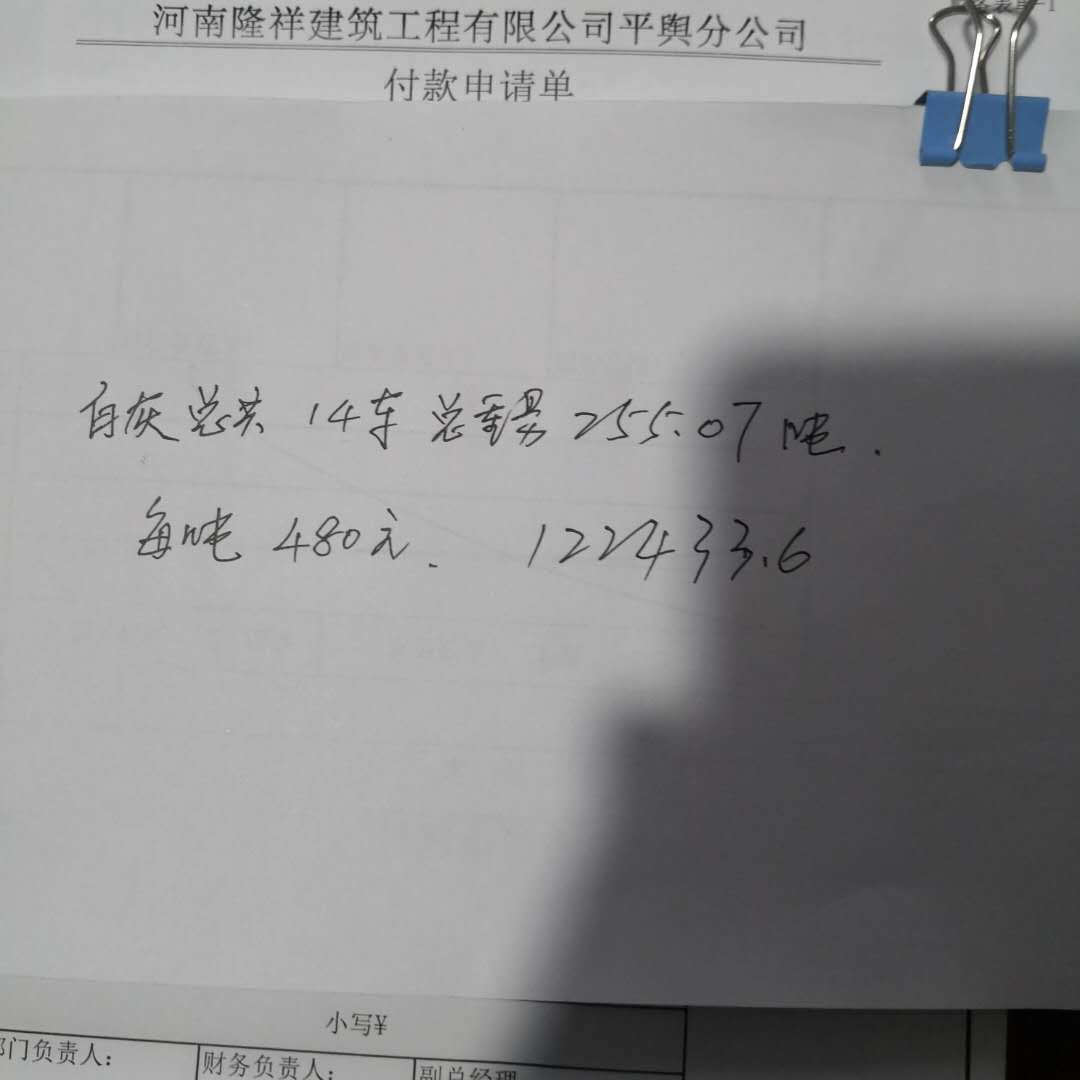 河南隆祥建筑工程有限公司平舆分公司
付款申请单
白灰总共 14车 总重量 255.07 吨.
每吨 480元. 122433.6
小写¥
部门负责人:
财务负责人:
副总经理